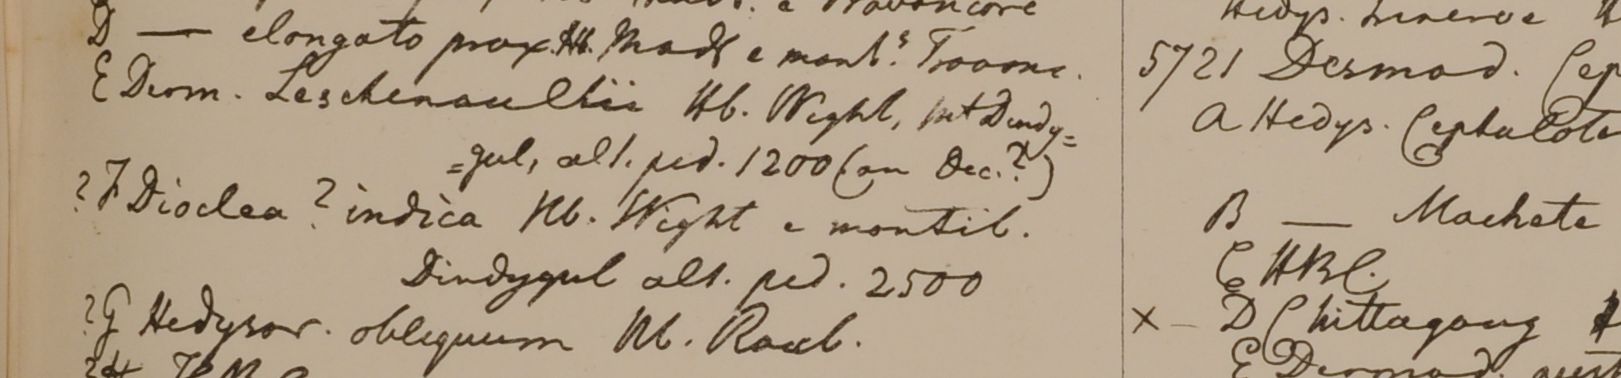 e Travancore
D — elongato prox. Hb. Madr e mont.s Travanc.
E Desm. Leschenaultii Hb. Wight, mt Dindy=
=gul, alt. ped. 1200 (an Dec.?)
? F Dioclea ? indica Hb. Wight e montib.
Dindygul alt. ped. 2500
? G Hedysar. obliquum Hb. Roxb.
? H
Hedys.
5721 Desmod. Cep
A Hedys. Cephalote
B — Machete
C HBC.
× – D Chittagong
E Desmod.